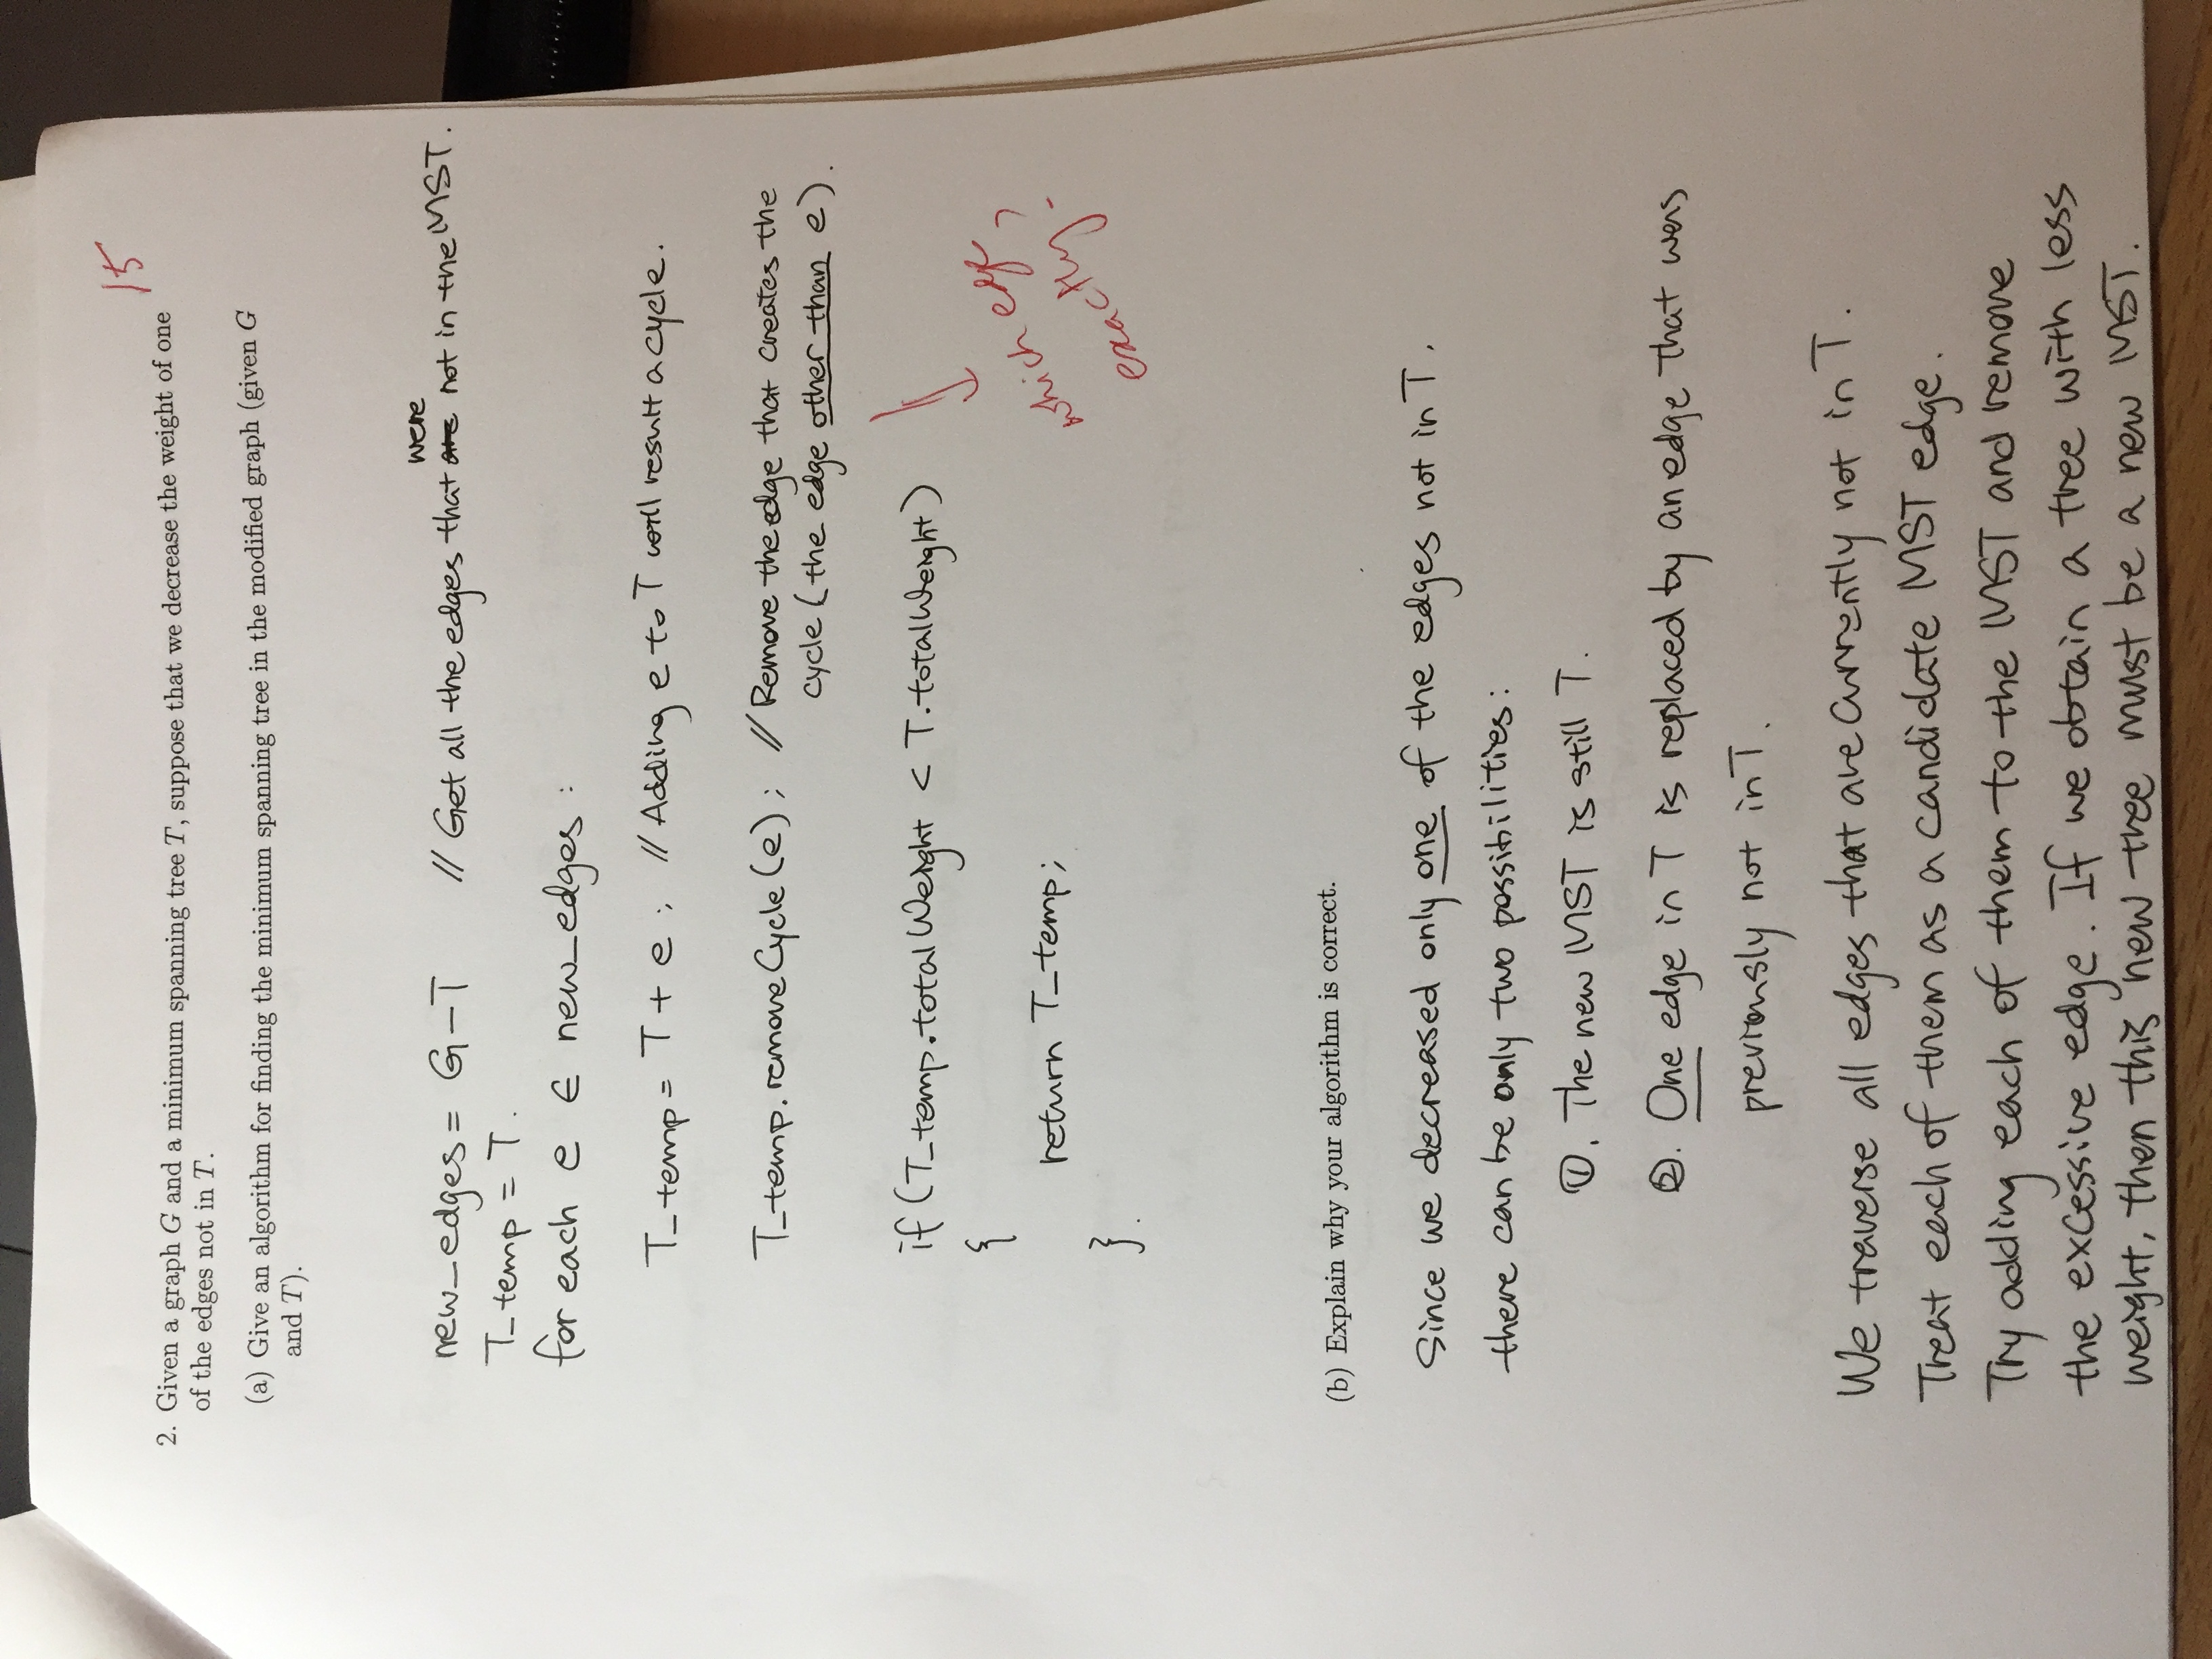 15
2. Given a graph G and a minimum spanning tree T, suppose that we decrease the weight of one
of the edges not in T.
(a) Give an algorithm for finding the minimum spanning tree in the modified graph (given G
and T).
were
new_edges = G-T // Get all the edges that are not in the MST.
T_temp = T.
for each e ∈ new_edges :
T_temp = T + e ; // Adding e to T will result a cycle.
T_temp.removeCycle(e) ; // Remove the edge that creates the
cycle (the edge other than e).
if (T_temp.totalWeight < T.totalWeight)
{
return T_temp;
}.
which edge
exactly?
(b) Explain why your algorithm is correct.
Since we decreased only one of the edges not in T,
there can be only two possibilities:
①. The new MST is still T.
②. One edge in T is replaced by an edge that was
previously not in T.
We traverse all edges that are currently not in T.
Treat each of them as a candidate MST edge.
Try adding each of them to the MST and remove
the excessive edge. If we obtain a tree with less
weight, then this new tree must be a new MST.